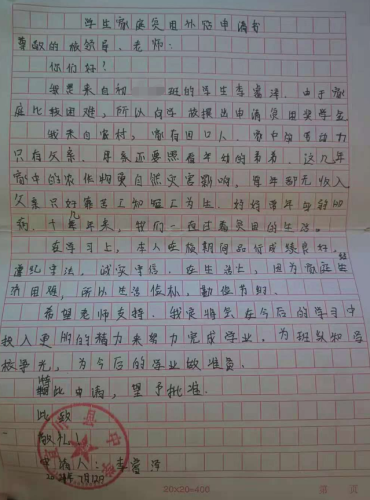 学生家庭贫困补给申请书
尊敬的校领导、老师：
你们好？
我是来自初 班的学生李 由于家
庭比较困难，所以向学校提出申请贫困奖学金
我来自农村，家有四口人，家中 劳动力
只有父亲，母亲还要照看年幼的 这几年
家中的农作物受自然灾害影响，常年都无收入
父亲只好靠 工 为生，
病，十几年来，我们一直过着贫困的生活。
在学习上，本人在校期间品行成绩良好，
遵纪守法，诚实守信，在生活上，因为家庭经
济困难，所以生活俭朴，勤俭为财。
希望老师支持，我定将会在今后的学习中
投入更多的精力来努力完成学业，为班级和学
校争光，为今后的学业做准备。
特此申请，望予批准。
此致
敬礼！
申请人：李
月12日
20×20=400
第 页